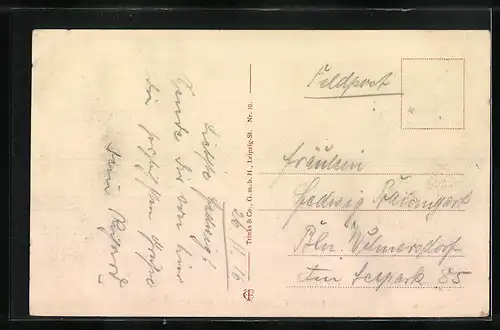 26/I 16
Liebste Hedwig!
Sende Dir von hier
die herzlichsten Grüße
Dein
Trinks & Co., G. m. b. H., Leipzig-St. Nr. 10.
Feldpost
Fräulein
Hedwig Baumgart
Bln. Wilmersdorf
Am Seepark 85